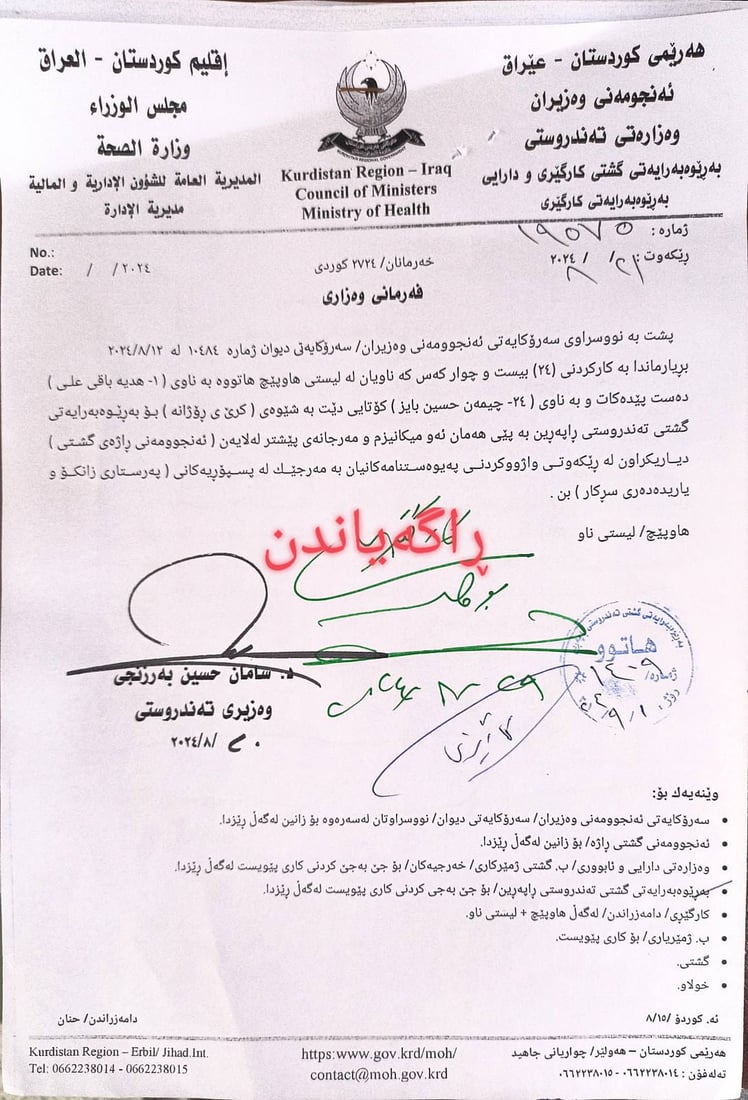 هەرێمی کوردستان - عێراق
ئەنجومەنی وەزیران
وەزارەتی تەندروستی
بەڕێوەبەرایەتی گشتی کارگێری و دارایی
بەڕێوەبەرایەتی کارگێری
Kurdistan Region – Iraq
Council of Ministers
Ministry of Health
إقليم كوردستان - العراق
مجلس الوزراء
وزارة الصحة
المديرية العامة للشؤون الإدارية و المالية
مديرية الإدارة
ژمارە: ١٩٥٧٥
ڕێکەوت: ٢١/ ٨/ ٢٠٢٤
خەرمانان/ ٢٧٢٤ کوردی
No.:
Date: / /٢٠٢٤
فەرمانی وەزاری
پشت بە نووسراوی سەرۆکایەتی ئەنجوومەنی وەزیران/ سەرۆکایەتی دیوان ژمارە ١٠٤٨٤ لە ٢٠٢٤/٨/١٢
بڕیارماندا بە کارکردنی (٢٤) بیست و چوار کەس کە ناویان لە لیستی هاوپێچ هاتووە بە ناوی ( ١- هدیە باقی علی )
دەست پێدەکات و بە ناوی ( ٢٤- چیمەن حسین بایز ) کۆتایی دێت بە شێوەی ( کرێ ی ڕۆژانە ) بۆ بەڕێوەبەرایەتی
گشتی تەندروستی ڕاپەڕین بە پێی هەمان ئەو میکانیزم و مەرجانەی پێشتر لەلایەن ( ئەنجوومەنی ڕاژەی گشتی )
دیاریکراون لە ڕێکەوتی واژووکردنی پەیوەستنامەکانیان بە مەرجێك لە پسپۆڕیەکانی ( پەرستاری زانکۆ و
یاریدەدەری سڕکار ) بن .
هاوپێچ/ لیستی ناو
ڕاگەیاندن
د. سامان حسین بەرزنجی
وەزیری تەندروستی
٢٠٢٤/٨/٢٠
بەڕێوەبەرایەتی گشتی تەندروستی
هاتوو
ژمارە/ ١٤٠٩
ڕۆژ
وێنەیەك بۆ:
• سەرۆکایەتی ئەنجوومەنی وەزیران/ سەرۆکایەتی دیوان/ نووسراوتان لەسەرەوە بۆ زانین لەگەڵ ڕێزدا.
• ئەنجوومەنی گشتی ڕاژە/ بۆ زانین لەگەڵ ڕێزدا.
• وەزارەتی دارایی و ئابووری/ ب. گشتی ژمێرکاری/ خەرجیەکان/ بۆ جێ بەجێ کردنی کاری پێویست لەگەڵ ڕێزدا.
• بەڕێوەبەرایەتی گشتی تەندروستی ڕاپەڕین/ بۆ جێ بەجی کردنی کاری پێویست لەگەڵ ڕێزدا.
• کارگێڕی/ دامەزراندن/ لەگەڵ هاوپێچ + لیستی ناو.
• ب. ژمێریاری/ بۆ کاری پێویست.
• گشتی.
• خولاو.
ئە. کوردۆ /٨/١٥
دامەزراندن/ حنان
هەرێمی کوردستان – هەولێر/ چواریانی جاهید
تەلەفۆن : ٠٦٦٢٢٣٨٠١٤ - ٠٦٦٢٢٣٨٠١٥
https:www.gov.krd/moh/
contact@moh.gov.krd
Kurdistan Region – Erbil/ Jihad.Int.
Tel: 0662238014 - 0662238015